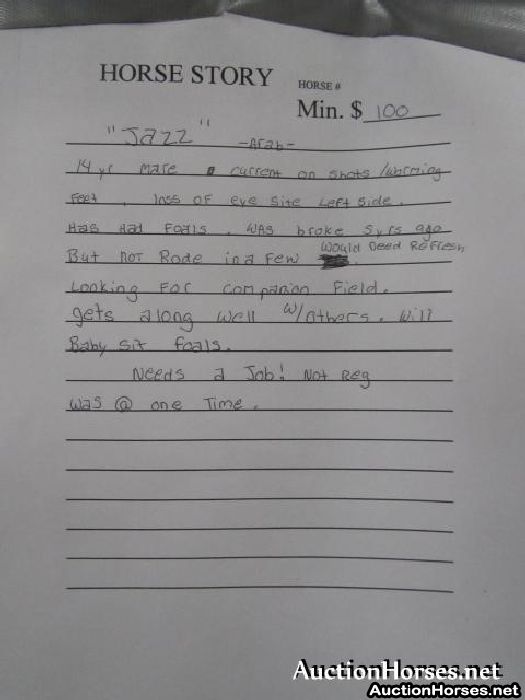 HORSE STORY
HORSE #
Min. $ 100
"Jazz"
-Arab-
14 yr mare current on shots/worming
Feet. loss OF eye site Left side.
Has Had Foals. WAS broke 5 yrs ago
Would need Refresh
But NOT Rode in a Few
Looking For companion Field.
gets along well w/others. Will
Baby sit foals.
Needs a Job! Not Reg
was @ one Time.
AuctionHorses.net
AuctionHorses.net